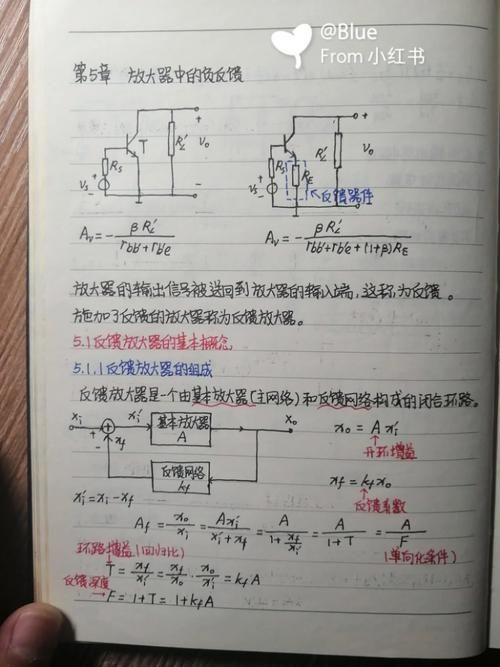 @Blue
From 小红书
第5章 放大器中的负反馈
T
RL'
Vo
RS
VS
RL'
Vo
RS
VS
RE
反馈器件
AV = - βRL' / rbb'+rb'e
AV = - βRL' / rbb'+rb'e+(1+β)RE
放大器的输出信号被送回到放大器的输入端,这称为反馈。
施加了反馈的放大器称为反馈放大器。
5.1反馈放大器的基本概念
5.1.1反馈放大器的组成
反馈放大器是一个由基本放大器(主网络)和反馈网络构成的闭合环路。
xi
xi'
基本放大器
A
xo
xf
反馈网络
kf
xo = A xi'
开环增益
xf = kf xo
反馈系数
xi' = xi - xf
Af = xo/xi = Axi'/(xi'+xf) = A/(1+xf/xi') = A/(1+T) = A/F
环路增益(回归比)
(单向化条件)
T = xf/xi' = xf/xo · xo/xi' = kf A
反馈深度
F = 1+T = 1+kf A